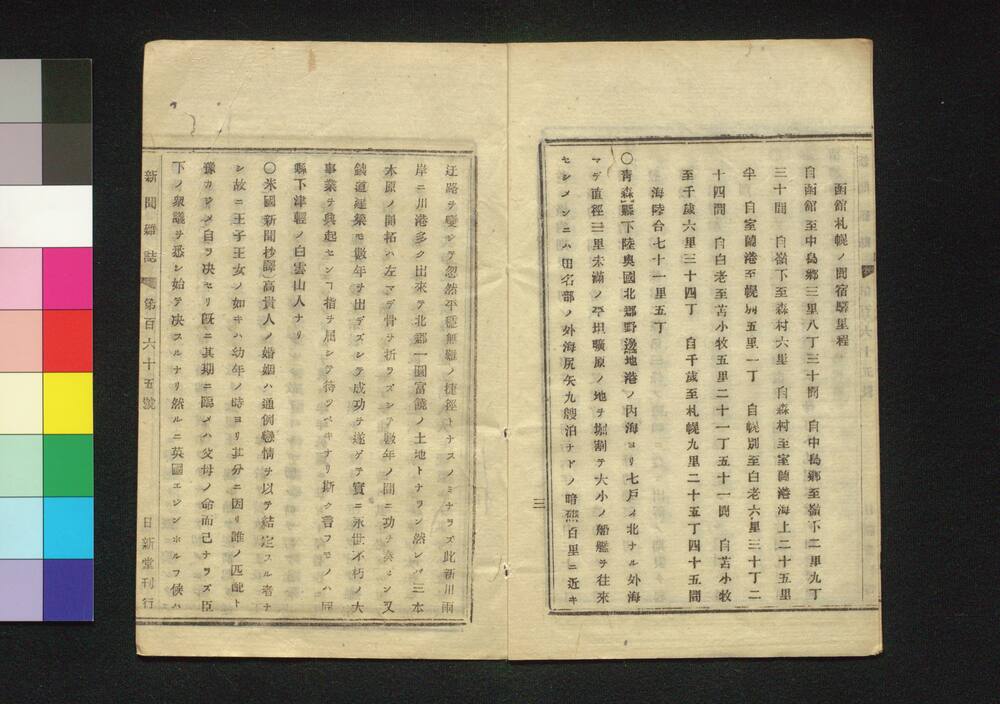 函館札幌ノ間宿驛里程
自函館至中島郷三里八丁三十間　自中島郷至嶺下二里九丁
三十間　自嶺下至森村六里　自森村至室蘭港海上二十五里
半　自室蘭港至幌別五里一丁　自幌別至白老六里三十丁二
十四間　自白老至苫小牧五里二十一丁五十一間　自苫小牧
至千歳六里三十四丁　自千歳至札幌九里二十五丁四十五間
海陸合七十一里五丁
〇青森縣下陸奥國北郷野邊地港ノ内海ヨリ七戸ノ北ナル外海
マデ直徑三里未滿ノ平坦曠原ノ地ヲ堀割テ大小ノ船艦ヲ往來
セシメンニハ田名部ノ外海尻矢九艘泊ナドノ暗礁百里ニ近キ
三
迂路ヲ變シテ忽然平穏無難ノ捷徑トナスノミナラズ此新川兩
岸ニ川港多ク出來テ北郷一圓富饒ノ土地トナラン然シバ三本
木原ノ開拓ハ左マデ骨ヲ折ラズシテ數年ノ間ニ功ヲ奏セン又
鐵道建築モ數年ヲ出デズシテ成功ヲ遂ゲテ實ニ永世不朽ノ大
事業ヲ興起センヿ指ヲ屈シテ待ツベキナリ斯ク言フモノハ同
縣下津輕ノ白雲山人ナリ
〇米國新聞抄譯高貴人ノ婚姻ハ通例戀情ヲ以テ結定スル者ナ
シ故ニ王子王女ノ如キハ幼年ノ時ヨリ其分ニ因リ誰ノ匹配ト
豫カジメ自ラ决セリ既ニ其期ニ臨メハ父母ノ命而已ナラズ臣
下ノ衆議ヲ悉シ始テ决スルナリ然ルニ英國エジンボルフ候ハ
新聞雜誌　第百六十五號　日新堂刊行